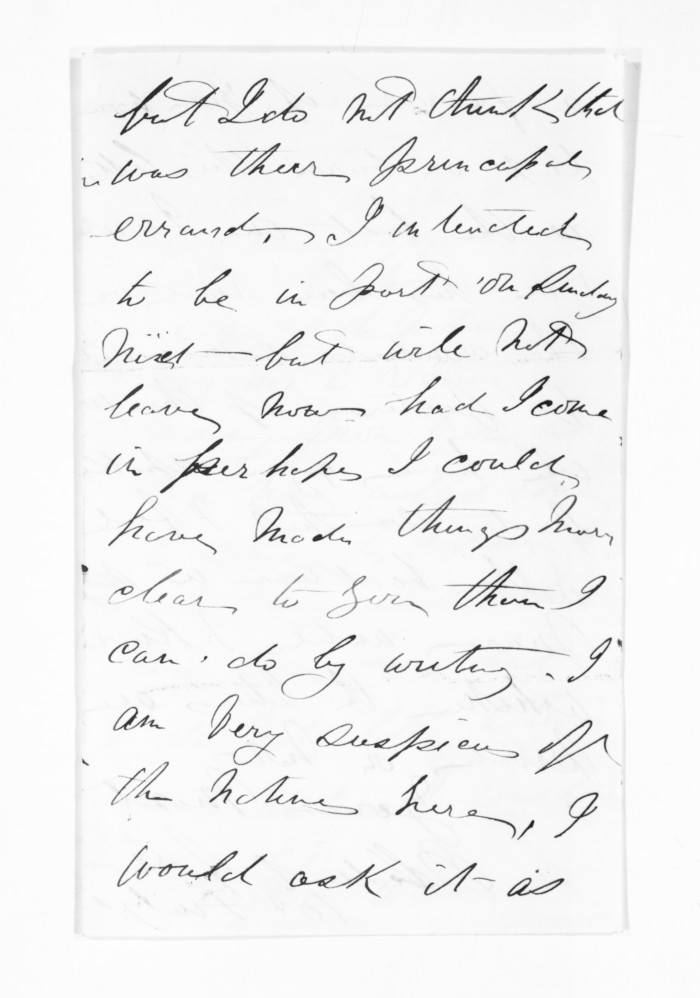 but I do not think that
was their principal
errand, I intended
to be in port on Sunday
Next - but will not
leave now had I come
in perhaps I could
have made things more
clear to you than I
can do by writing. I
am very suspicious of
the natives here, I
would ask it as